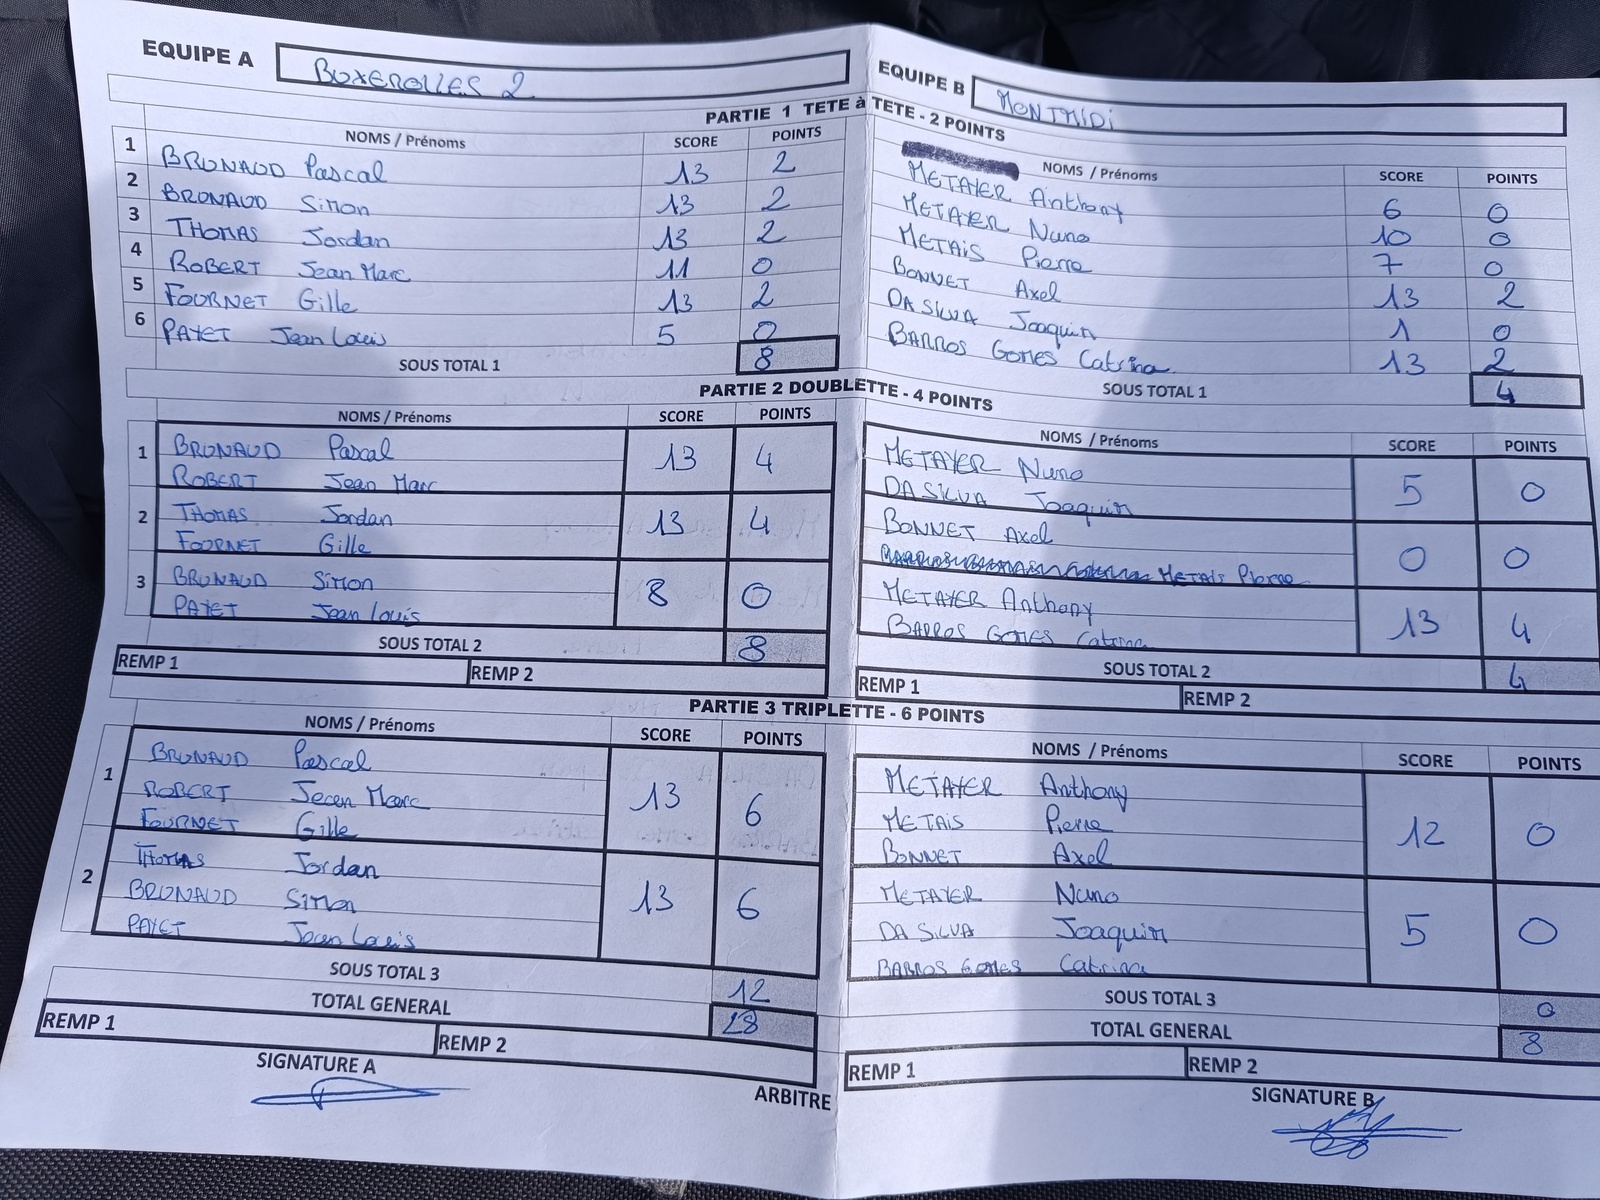 EQUIPE A BUXEROLLES 2
EQUIPE B MONTMIDI
PARTIE 1 TETE à TETE - 2 POINTS
NOMS / Prénoms SCORE POINTS
1 BRUNAUD Pascal 13 2
2 BRUNAUD Simon 13 2
3 THOMAS Jordan 13 2
4 ROBERT Jean Marc 11 0
5 FOURNET Gille 13 2
6 PAYET Jean Louis 5 0
SOUS TOTAL 1 8
NOMS / Prénoms SCORE POINTS
METAYER Anthony 6 0
METAYER Nuno 10 0
METAIS Pierre 7 0
BONNET Axel 13 2
DA SILVA Joaquin 1 0
BARROS GOMES Catrina 13 2
SOUS TOTAL 1 4
PARTIE 2 DOUBLETTE - 4 POINTS
NOMS / Prénoms SCORE POINTS
1 BRUNAUD Pascal 13 4
ROBERT Jean Marc
2 THOMAS Jordan 13 4
FOURNET Gille
3 BRUNAUD Simon 8 0
PAYET Jean Louis
SOUS TOTAL 2 8
REMP 1 REMP 2
NOMS / Prénoms SCORE POINTS
METAYER Nuno 5 0
DA SILVA Joaquin
BONNET Axel 0 0
METAIS Pierre
METAYER Anthony 13 4
BARROS GOMES Catrina
SOUS TOTAL 2 4
REMP 1 REMP 2
PARTIE 3 TRIPLETTE - 6 POINTS
NOMS / Prénoms SCORE POINTS
1 BRUNAUD Pascal 13 6
ROBERT Jean Marc
FOURNET Gille
2 THOMAS Jordan 13 6
BRUNAUD Simon
PAYET Jean Louis
SOUS TOTAL 3 12
TOTAL GENERAL 28
REMP 1 REMP 2
SIGNATURE A
NOMS / Prénoms SCORE POINTS
METAYER Anthony 12 0
METAIS Pierre
BONNET Axel
METAYER Nuno 5 0
DA SILVA Joaquin
BARROS GOMES Catrina
SOUS TOTAL 3 0
TOTAL GENERAL 8
REMP 1 REMP 2
ARBITRE
SIGNATURE B